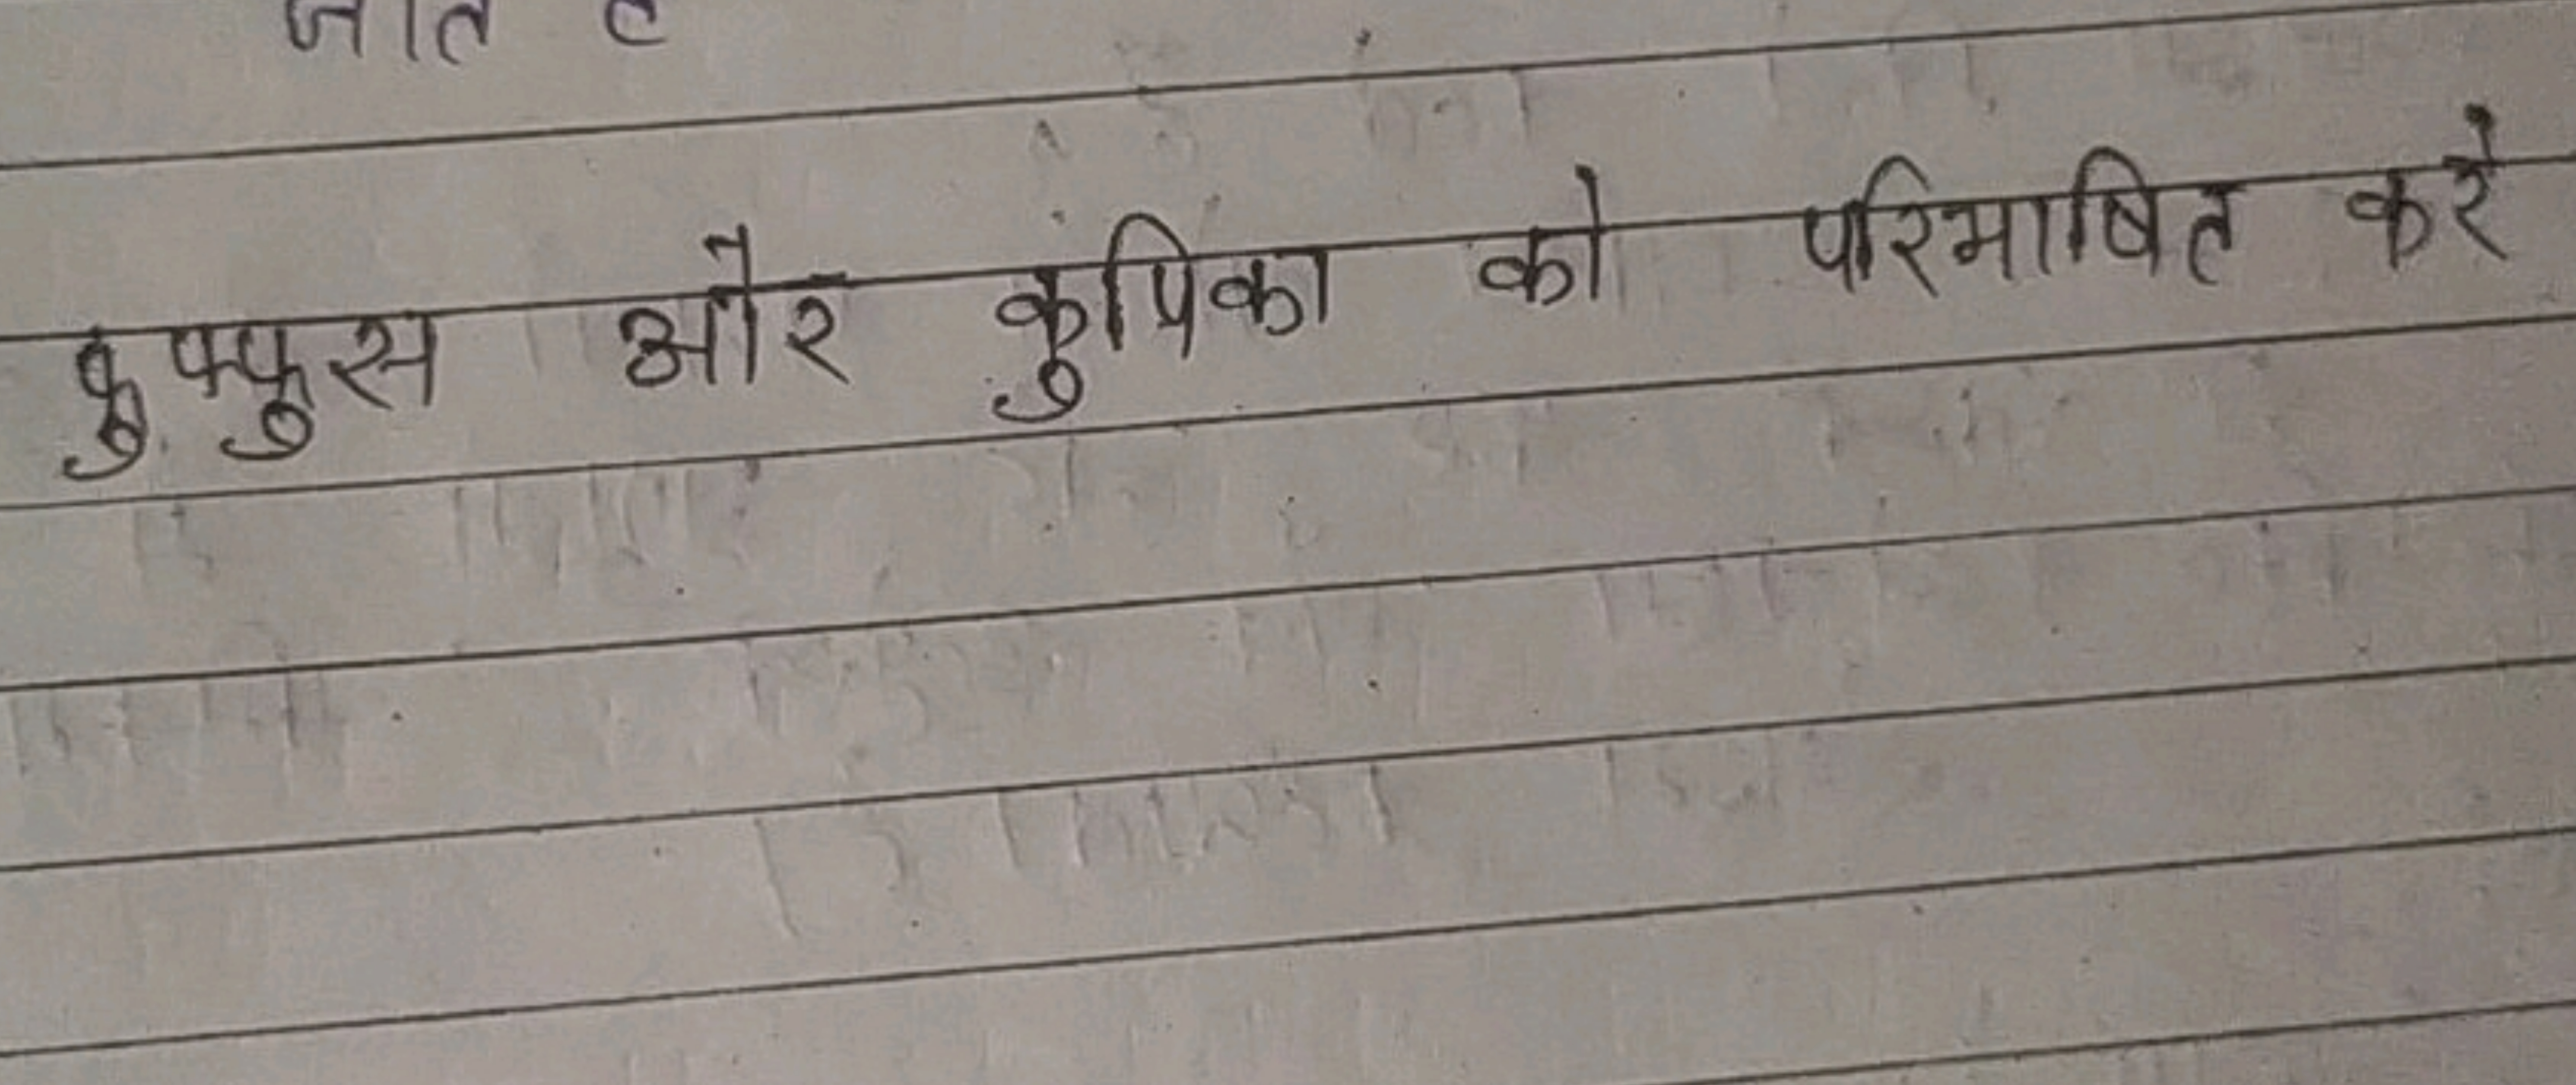 जाते है
फुफ्फुस और कुपिका को परिभाषित करे